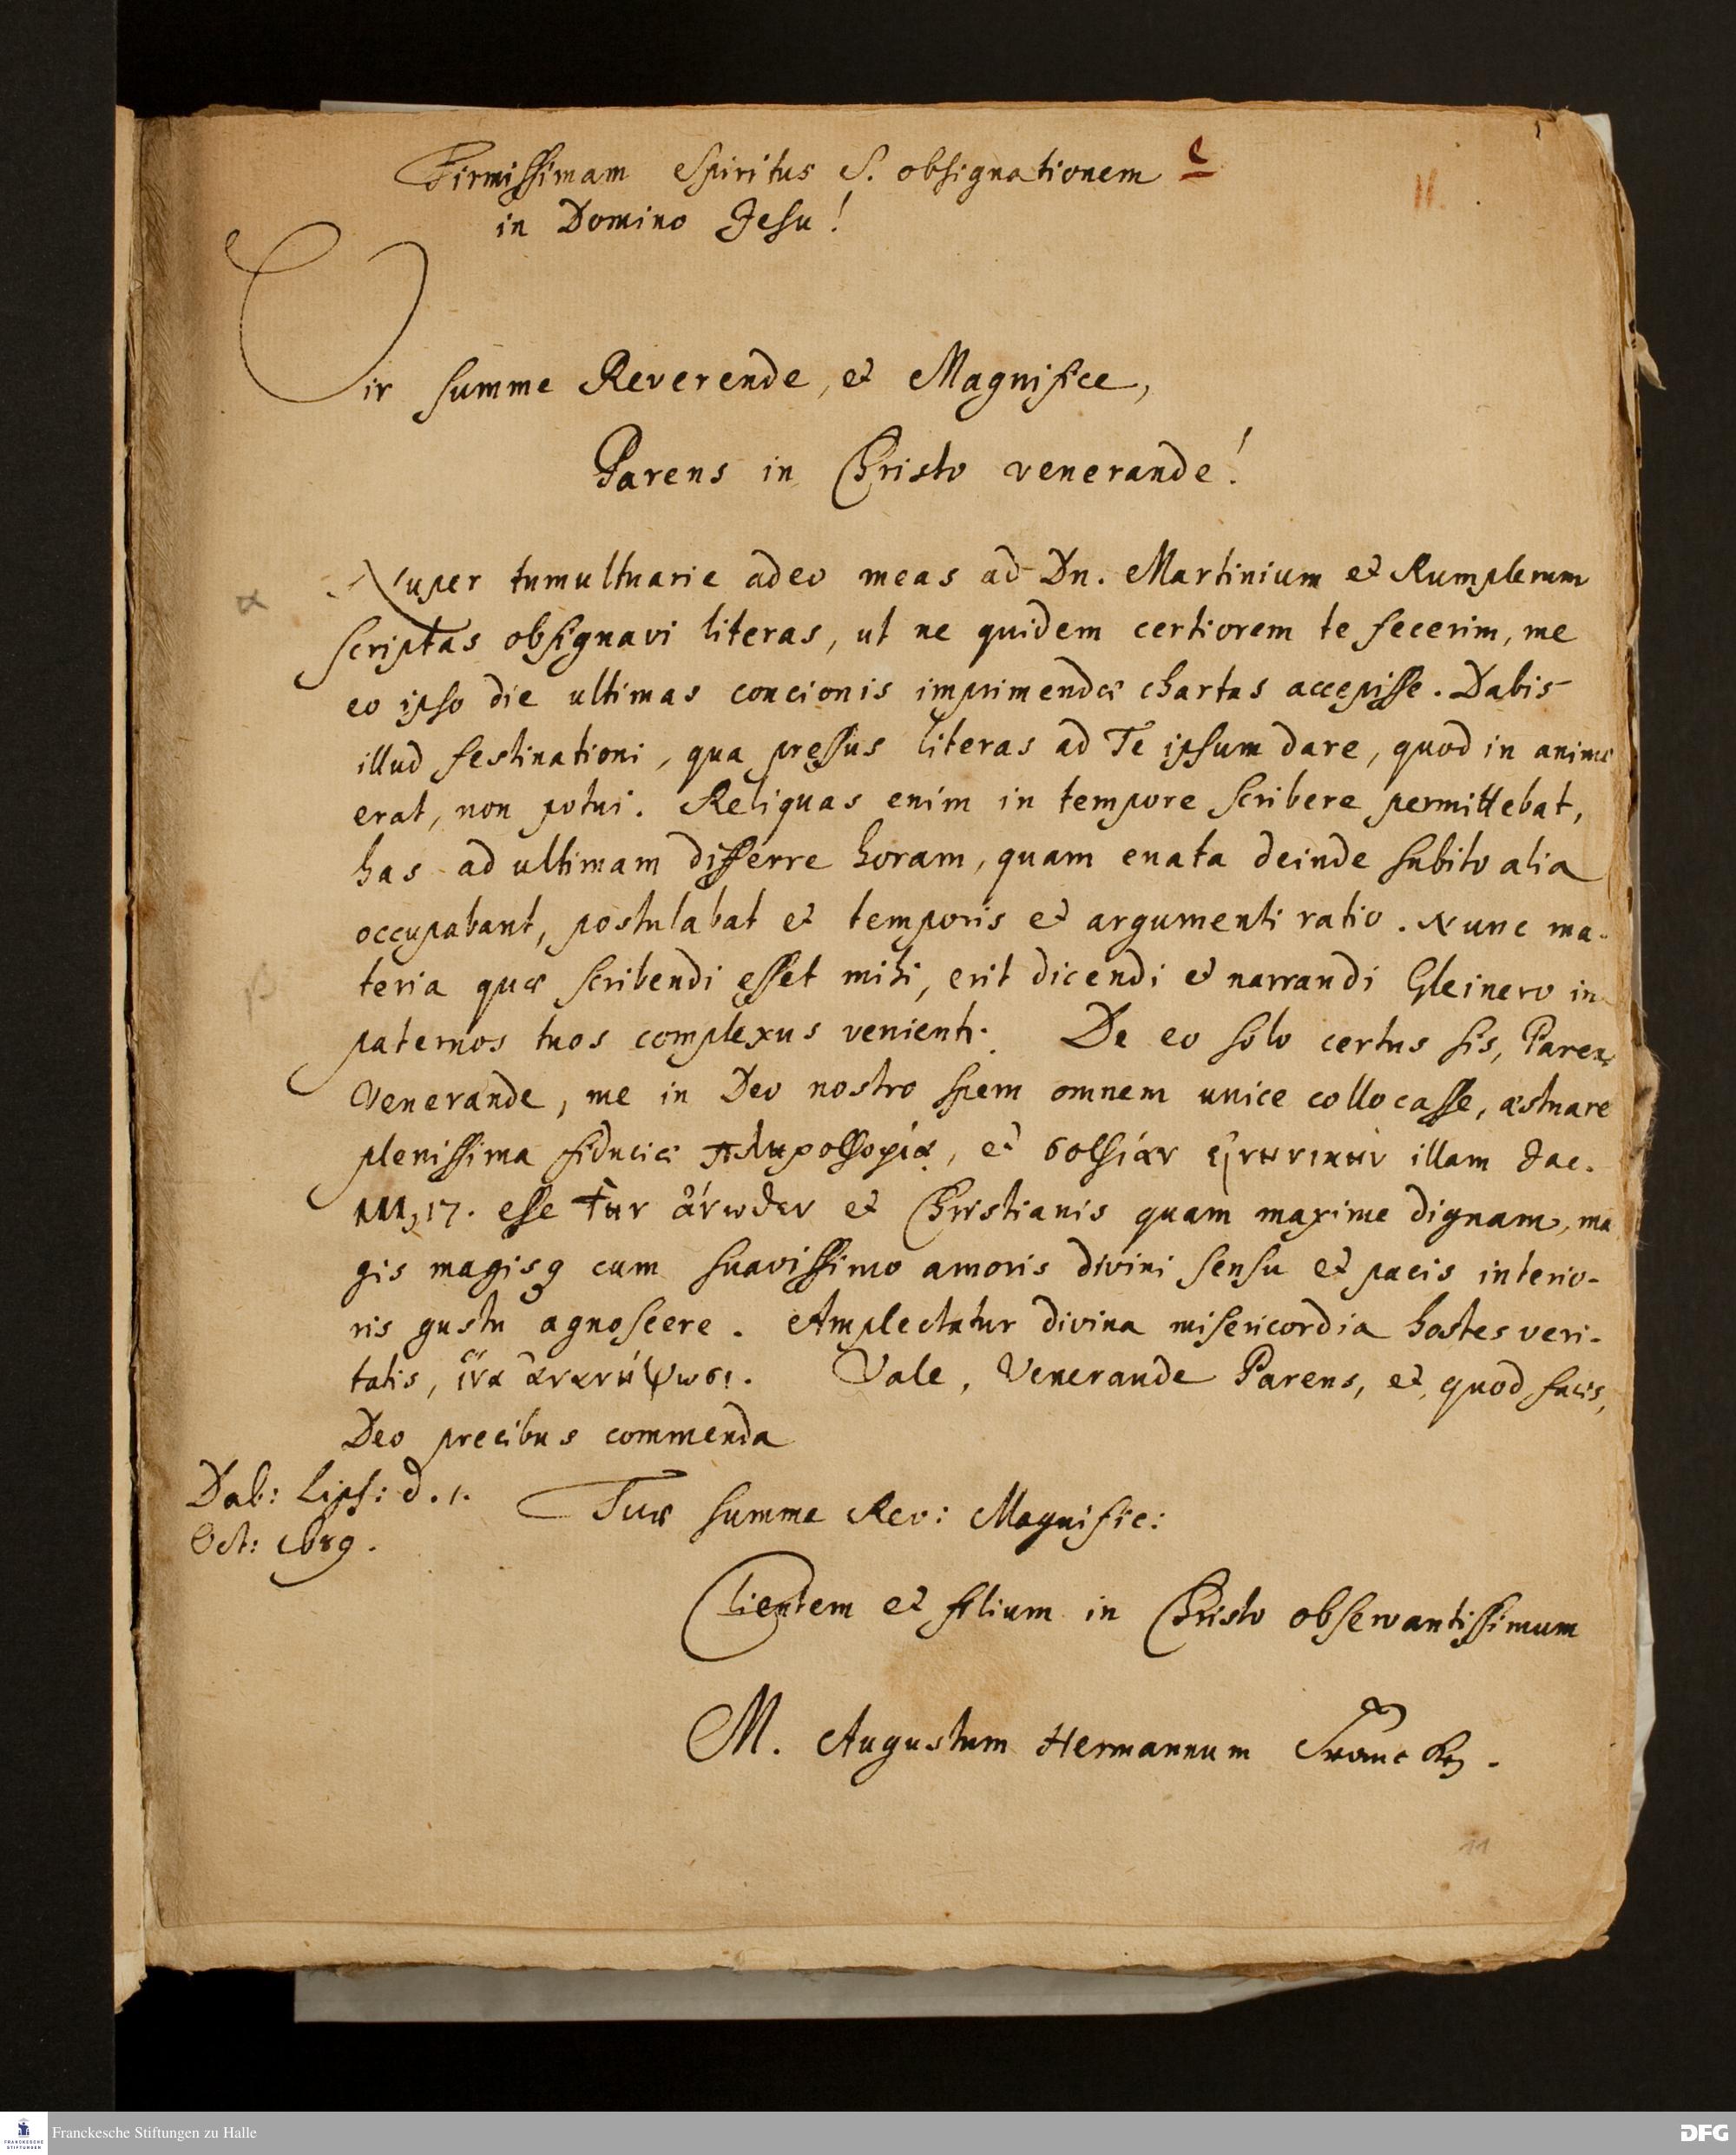 Firmissimam Spiritus S. obsignationem e
11.
in Domino Jesu!
Vir summe Reverende, et Magnifice,
Parens in Christo venerande!
α
Nuper tumultuarie adeo meas ad Dn. Martinium et Rumplerum
scriptas obsignavi literas, ut ne quidem certiorem te fecerim, me
eo ipso die ultimas concionis imprimendæ chartas accepisse. Dabis
illud festinationi, qua pressus literas ad Te ipsum dare, quod in animo
erat, non potui. Reliquas enim in tempore scribere permittebat,
has ad ultimam differre horam, quam enata deinde subito alia
occupabant, postulabat et temporis et argumenti ratio. Nunc ma-
β
teria quæ scribendi esset mihi, erit dicendi et narrandi Gleinero in
paternos tuos complexus venienti. De eo solo certus sis, Parens
Venerande, me in Deo nostro spem omnem unice collocasse, æstuare
plenissima fiduciæ πληροφορίᾳ, et σοφίαν εἰρηνικὴν illam Jac.
III, 17. esse τὴν ἄνωθεν et Christianis quam maxime dignam, ma
gis magisq cum suavissimo amoris divini sensu et pacis interio-
ris gustu agnoscere. Amplectatur divina misericordia hostes veri-
tatis, ἵνα ἀνανήψωσι. Vale, Venerande Parens, et, quod facis,
Deo precibus commenda
Dab: Lips: d. 1.
Oct: 1689.
Tuæ summe Rev: Magnific:
Clientem et filium in Christo observantissimum
M. Augustum Hermannum Francken.
11
Franckesche Stiftungen zu Halle
DFG